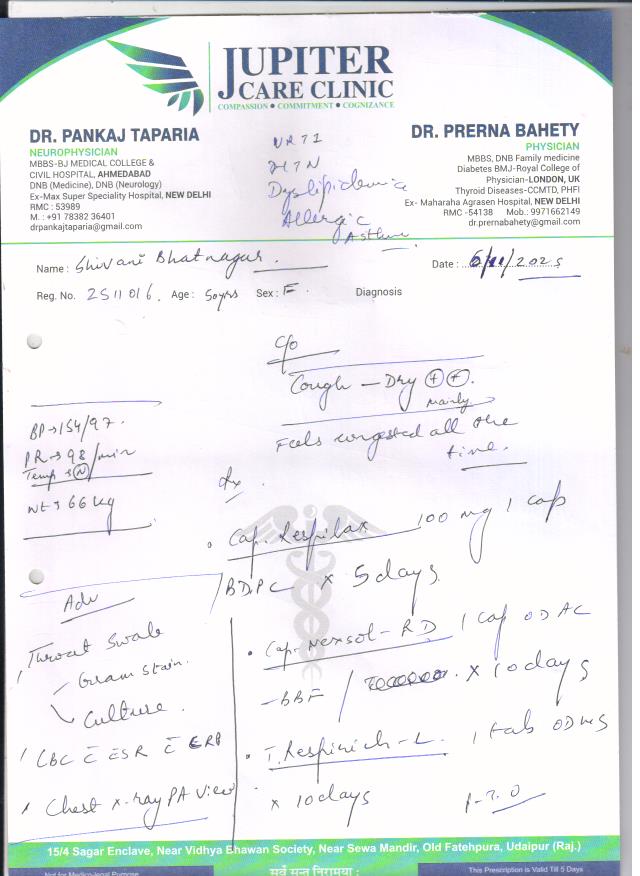 JUPITER
CARE CLINIC
COMPASSION • COMMITMENT • COGNIZANCE
DR. PANKAJ TAPARIA
NEUROPHYSICIAN
MBBS-BJ MEDICAL COLLEGE &
CIVIL HOSPITAL, AHMEDABAD
DNB (Medicine), DNB (Neurology)
Ex-Max Super Speciality Hospital, NEW DELHI
RMC : 53989
M. : +91 78382 36401
drpankajtaparia@gmail.com
URTI
HTN
Dyslipidemia
Allergic
Asthma
DR. PRERNA BAHETY
PHYSICIAN
MBBS, DNB Family medicine
Diabetes BMJ-Royal College of
Physician-LONDON, UK
Thyroid Diseases-CCMTD, PHFI
Ex- Maharaha Agrasen Hospital, NEW DELHI
RMC -54138 Mob.: 9971662149
dr.prernabahety@gmail.com
Name : Shivani Bhatnagar Date : 6/11/2025
Reg. No. 2511016. Age : 50yrs Sex : F Diagnosis
C/o
Cough - Dry ++.
mainly
Feels congested all the
time.
BP → 154/97.
PR → 98/min
Temp → N
Wt → 66 kg
Rx.
• Cap. Respilax 100 mg 1 cap
BD PC x 5 days
• Cap. Nexsol-RD 1 cap OD AC
-BBF / x 10 days
• T. Respinich-L 1 tab OD HS
x 10 days
Adv
Throat Swab
- Gram Stain.
Culture.
CBC c̄ ESR c̄ CRP
Chest x-ray PA View
15/4 Sagar Enclave, Near Vidhya Bhawan Society, Near Sewa Mandir, Old Fatehpura, Udaipur (Raj.)
Not for Medico-legal Purpose सर्वे सन्तु निरामया: This Prescription is Valid Till 5 Days